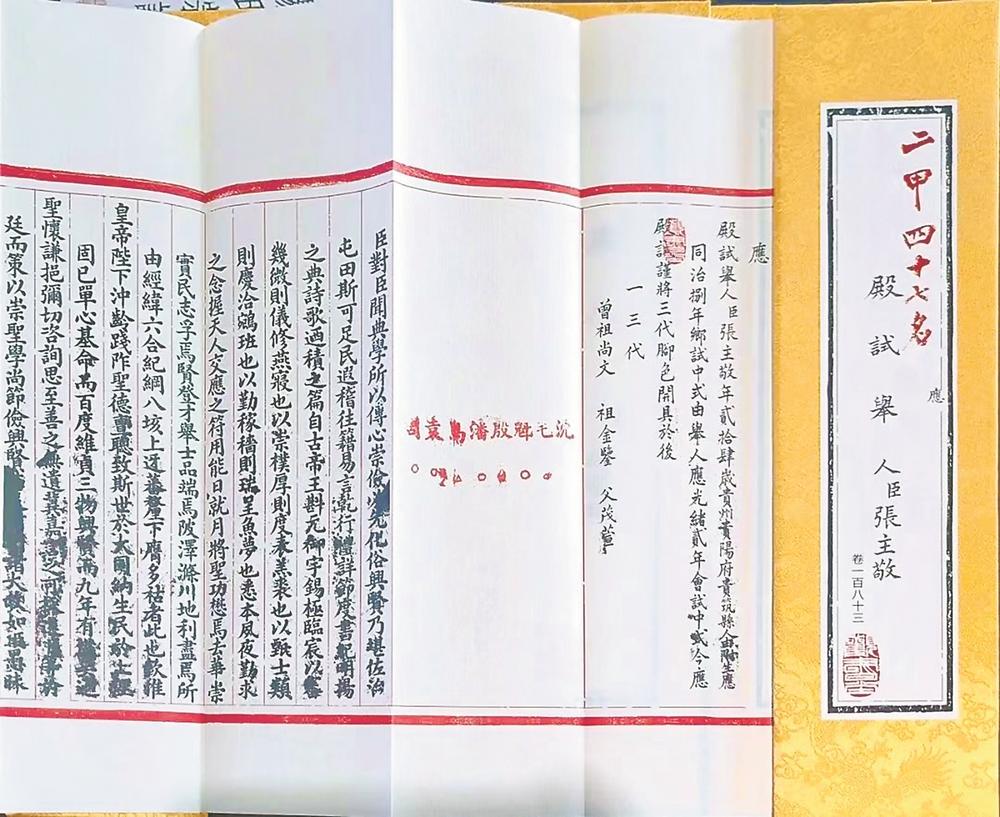 二甲四十七名
應
殿試舉人臣張主敬
卷一百八十三
應
殿試舉人臣張主敬年貳拾肆歲貴州貴陽府貴筑縣人由附生應
同治捌年鄉試中式由舉人應光緒貳年會試中式今應
殿試謹將三代腳色開具於後
一三代
曾祖尚文 祖金鑒 父茂萱
沈毛 殷潘烏袁
臣對臣聞典學所以傳心崇儉必先化俗興賢乃堪佐治
屯田斯可足民遐稽往籍易言乾行禮詳節度書紀明揚
之典詩歌迺積之篇自古帝王斟元御宇錫極臨宸以審
幾微則儀修燕寢也以崇樸厚則度表羔裘也以甄士類
則慶洽鵷班也以勤稼穡則瑞呈魚夢也悉本夙夜勤求
之念握天人交應之符用能日就月將聖功懋焉去華崇
實民志孚焉賢登才舉士品端焉陂澤滌川地利盡焉所
由經緯六合紀綱八垓上迓蕃釐下膺多祜者此也欽惟
皇帝陛下沖齡踐阼聖德 聽敷斯世於大 納生民於上
固已單心基命而百度維貞三物興賢而九年有
聖懷謙挹彌切咨詢思至善之無遺冀嘉
廷而策以崇聖學尚節儉興賢 諸大 如臣愚昧